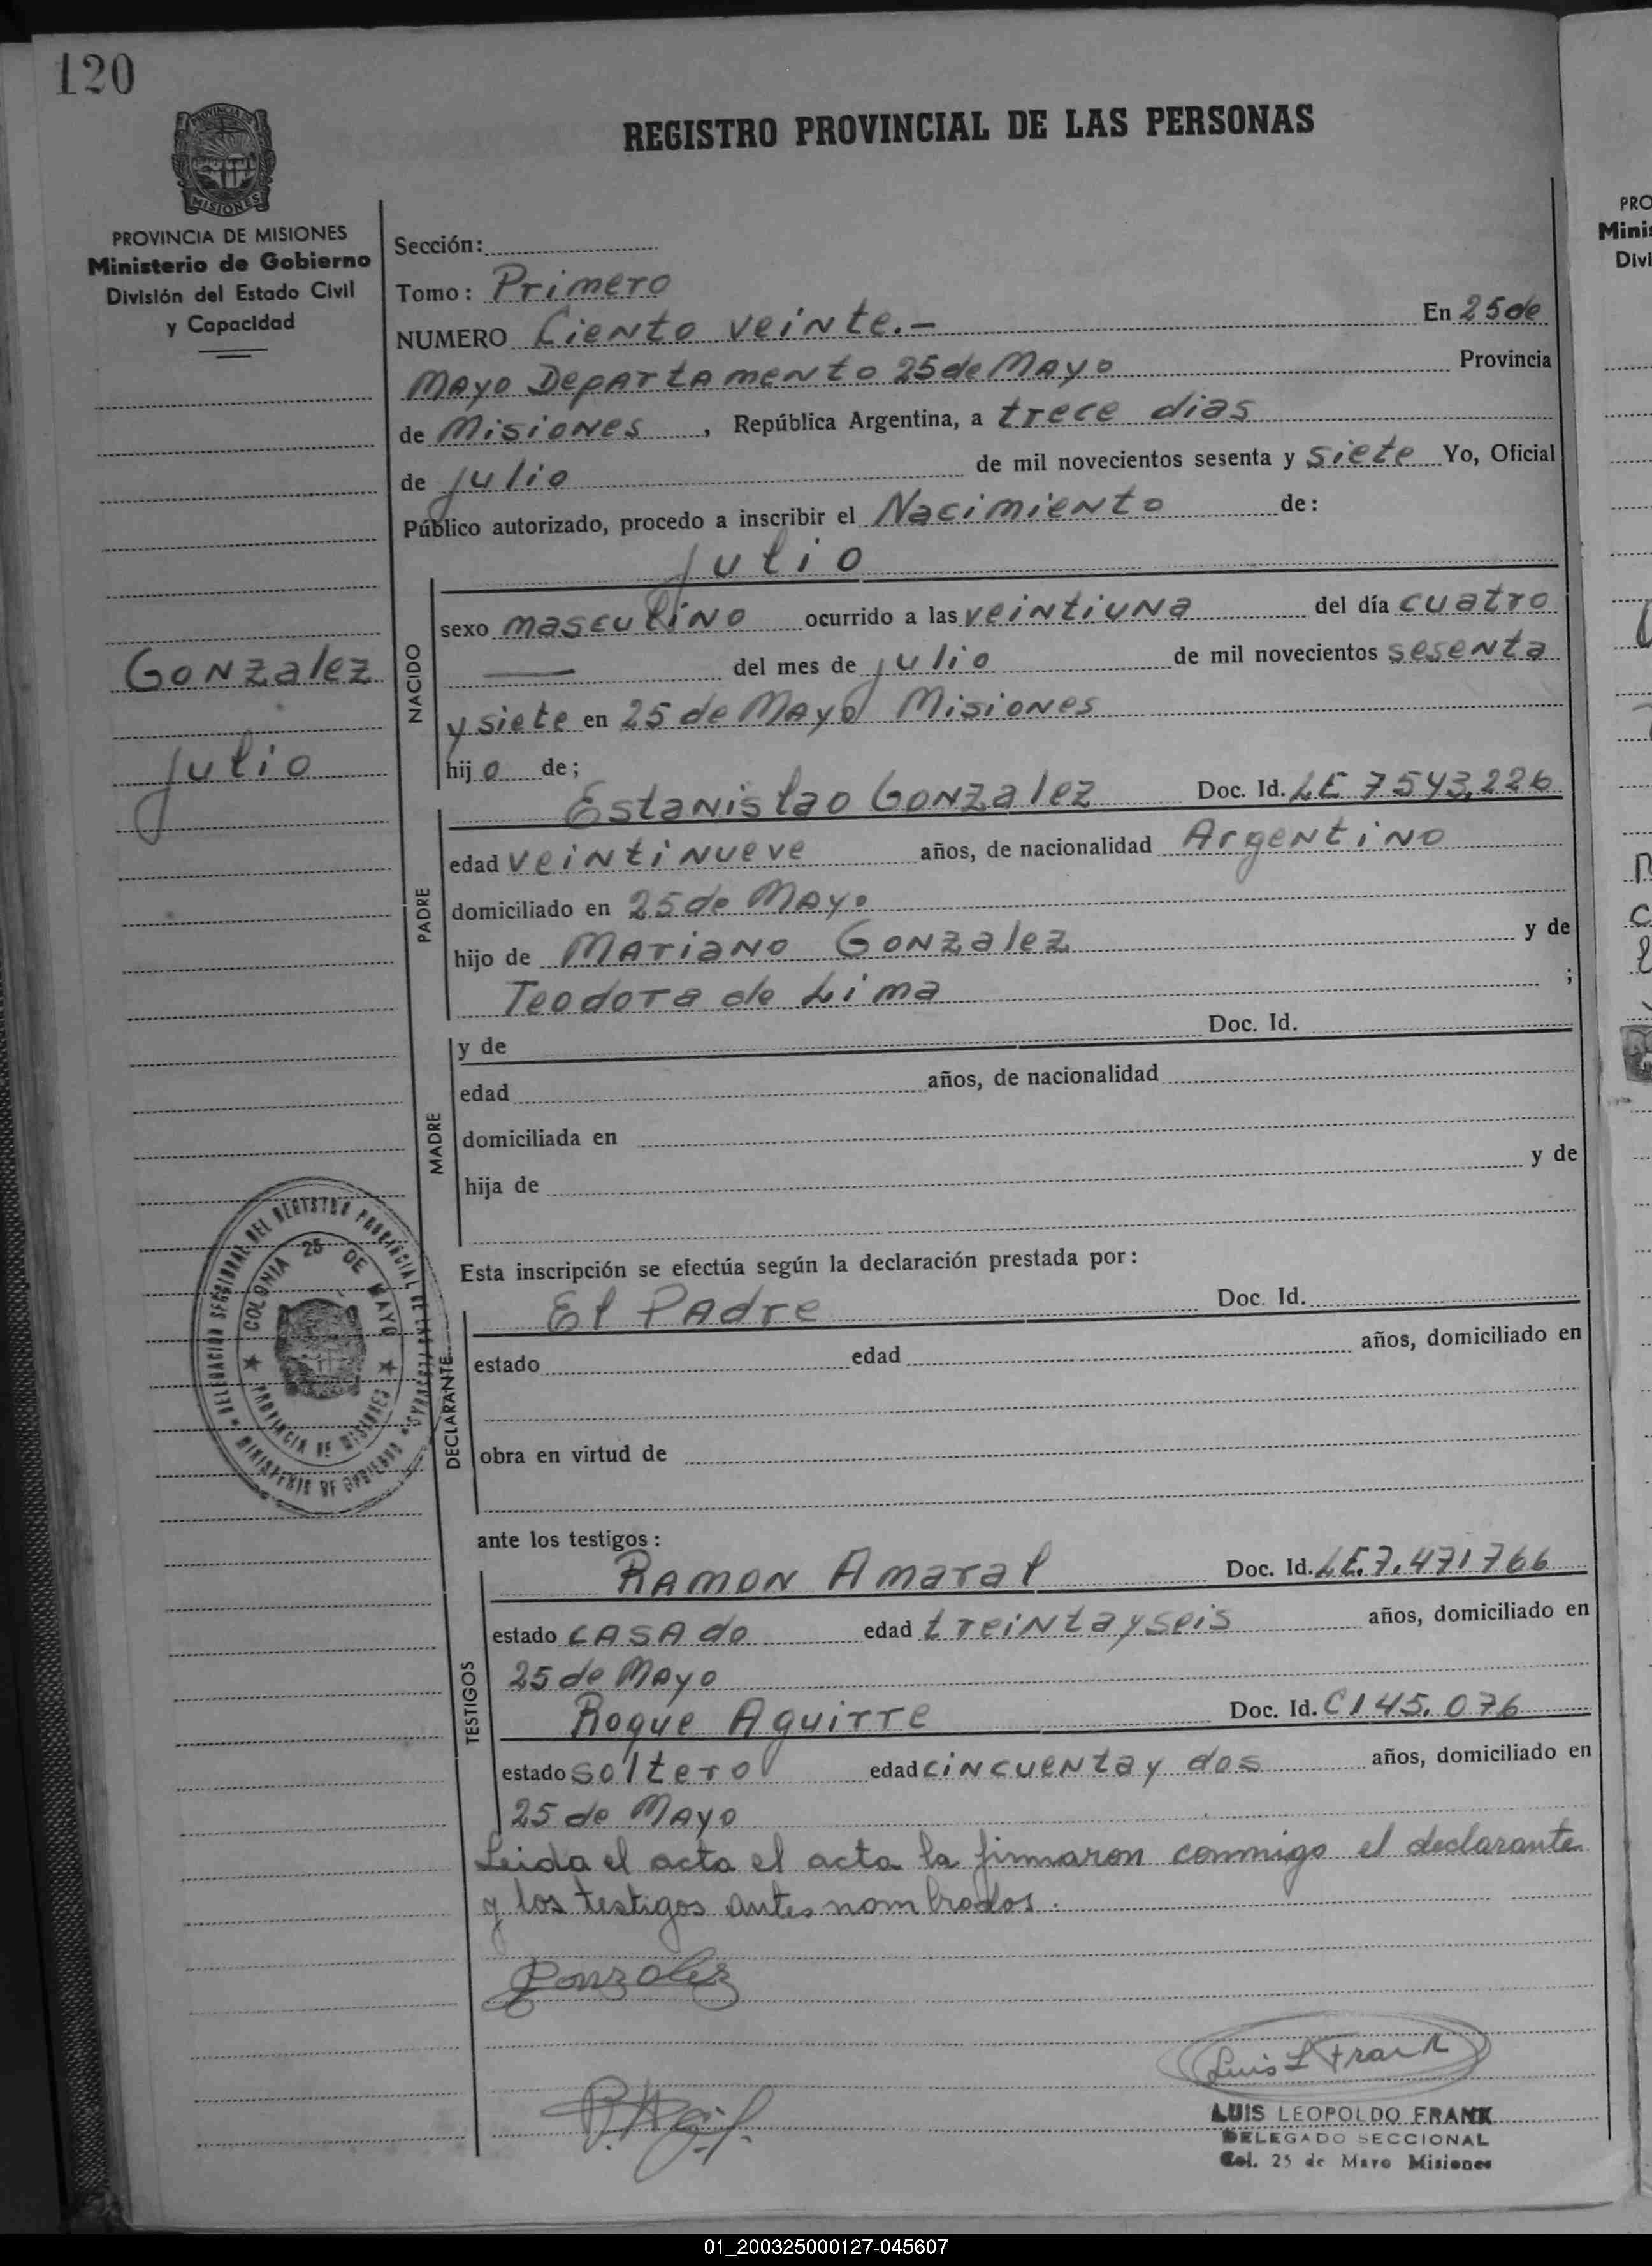 120
PROVINCIA DE
MISIONES
REGISTRO PROVINCIAL DE LAS PERSONAS
PROVINCIA DE MISIONES
Ministerio de Gobierno
División del Estado Civil
y Capacidad
Sección:
Tomo: Primero
NUMERO Ciento veinte.- En 25 de
Mayo Departamento 25 de Mayo Provincia
de Misiones, República Argentina, a trece dias
de Julio de mil novecientos sesenta y siete Yo, Oficial
Público autorizado, procedo a inscribir el Nacimiento de:
Julio
NACIDO
sexo masculino ocurrido a las veintiuna del día cuatro
— del mes de julio de mil novecientos sesenta
y siete en 25 de Mayo Misiones
hijo de;
Gonzalez
Julio
PADRE
Estanislao Gonzalez Doc. Id. LE 7543,226
edad veintinueve años, de nacionalidad Argentino
domiciliado en 25 de Mayo
hijo de Mariano Gonzalez y de
Teodora de Lima ;
MADRE
y de Doc. Id.
edad años, de nacionalidad
domiciliada en
hija de y de
Esta inscripción se efectúa según la declaración prestada por:
DECLARANTE
El Padre Doc. Id.
estado edad años, domiciliado en
obra en virtud de
DELEGACION SECCIONAL DEL REGISTRO PROVINCIAL DE LAS PERSONAS
MINISTERIO DE GOBIERNO
COLONIA 25 DE MAYO
PROVINCIA DE MISIONES
ante los testigos:
TESTIGOS
Ramon Amaral Doc. Id. LE.7.471766
estado casado edad treinta y seis años, domiciliado en
25 de Mayo
Roque Aguirre Doc. Id. CI 45.076
estado soltero edad cincuenta y dos años, domiciliado en
25 de Mayo
Leida el acta el acta la firmaron conmigo el declarante
y los testigos antes nombrados.
Gonzalez
Luis L Frank
LUIS LEOPOLDO FRANK
DELEGADO SECCIONAL
Col. 25 de Mayo Misiones
PRO
Minis
Divi
01_200325000127-045607